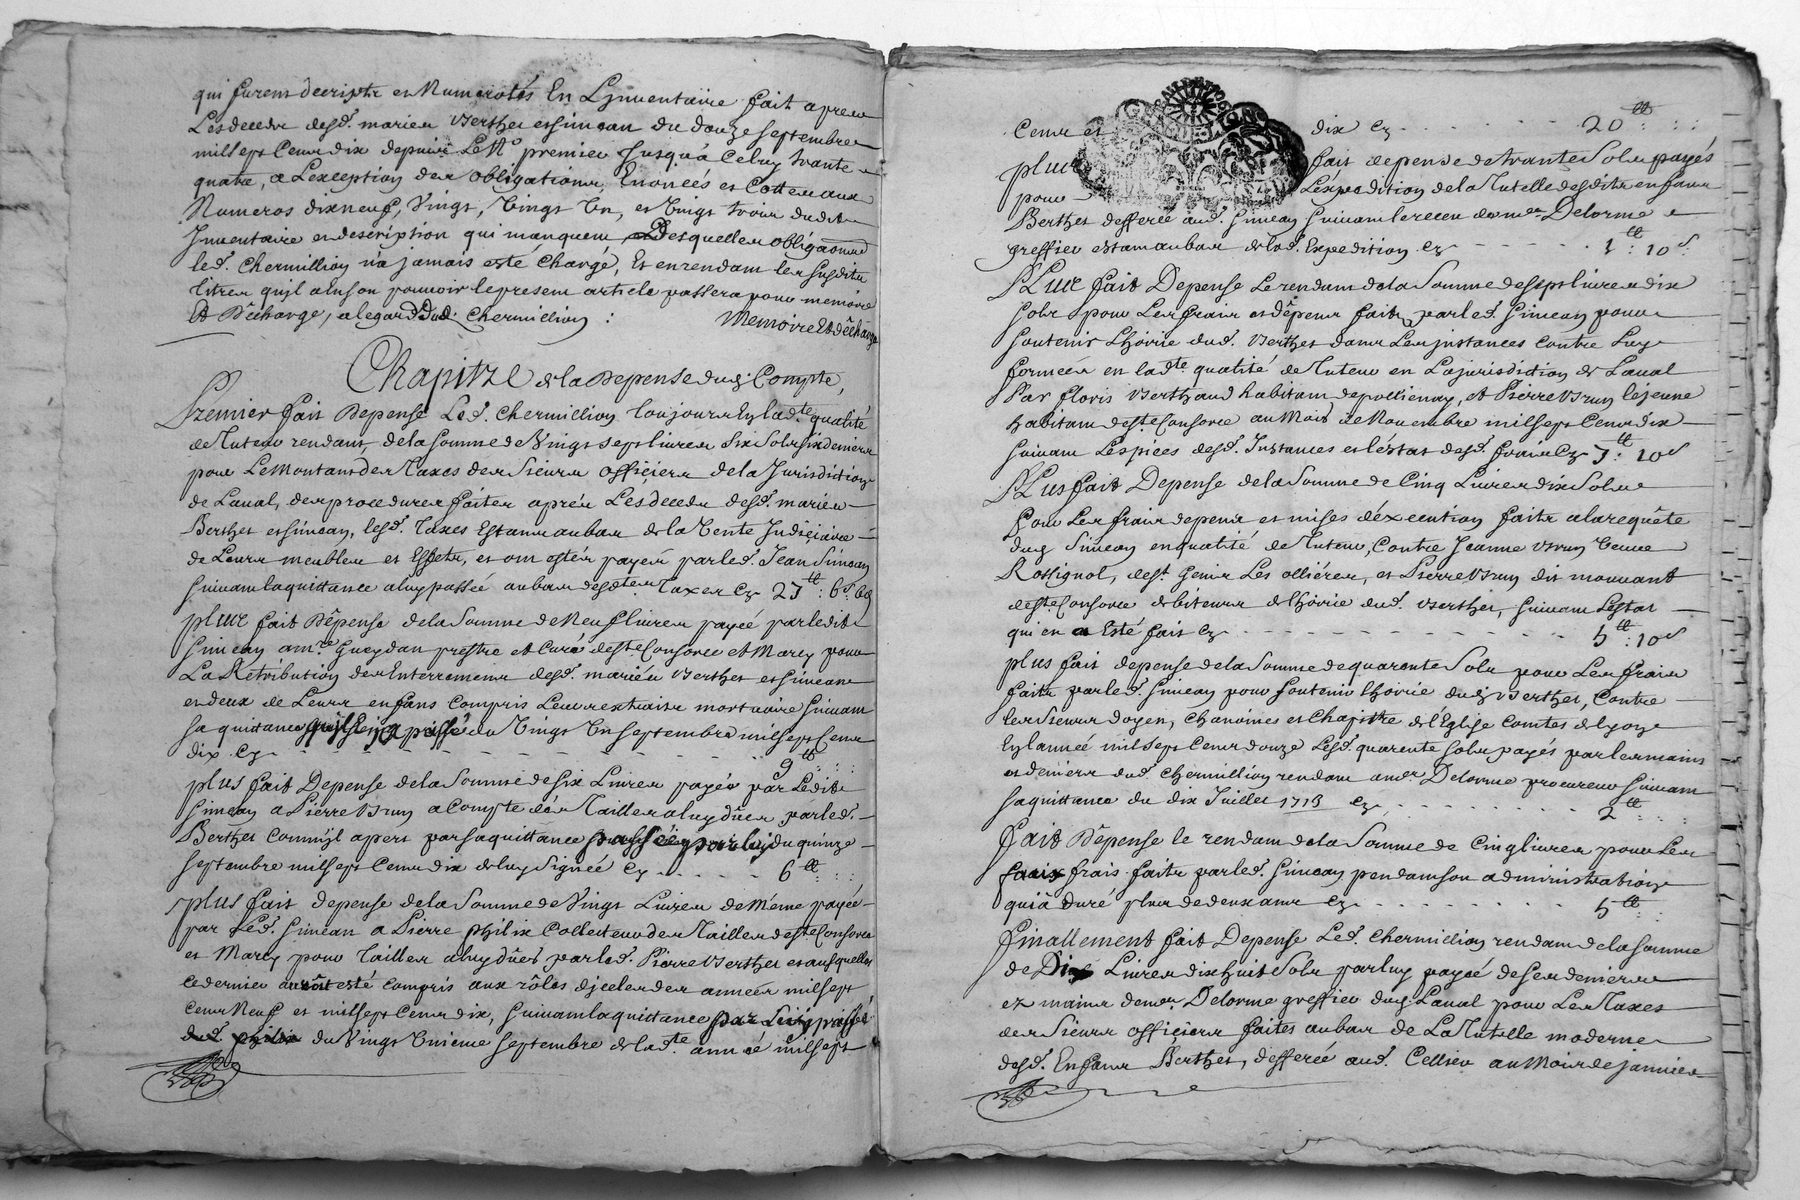 qui furent decripts et Numerotés En L'jnventaire fait apres
Les deceds desd. mariés Berthet et simean du douze septembre
mil sept Cent dix depuis Le N.o premier Jusqu'a Celuy trante
quatre, a L'exception des obligations Enoncés et Cottes aux
Numeros dixneuf, Vingt, Vingt Un, et Vingt trois dudit
Jnventaire et description qui manquent desquelles obligaõns
led. Chermillion n'a jamais esté Chargé, Et en rendant les susdits
titres qu'jl a En son pouvoir le present article passera pour memoire
Et Décharge, a legard dud. Chermillion : Memoire Et décharge
Chapitre de la Depense dud. Compte,
Premier fait Depense Led. Chermillion toujours En lad.te qualité
de Tuteur rendant, de la somme de Vingt sept livres six sols six deniers
pour Le montant des Taxes des sieurs officiers de la Jurisdiction
de Laval, des procedures faites aprés Les deceds desd. mariés
Berthet et simean, lesd. Taxes Estant au bas de la Vente Judiciaire
de Leurs meubles et Effets, et ont estés payés par led. Jean Simean
suivant la quittance a luy passée au bas desd.tes Taxes Cy 27tt : 6s. 6d
plus fait Dépense de la somme de Neuf livres payée par ledit
simean a m.re Gueydan prestre et Curé desd.t Consorce et Marcy pour
La Retribution des Enterrements desd. mariés Berthet et simean
et deux de Leurs enfans Compris Leur extraits mortuaire suivant
sa quittance qu'il En a passé du Vingt Un septembre mil sept Cent
dix Cy - - - - - - - 9tt : : :
plus fait Depense de la somme de six Livres payés par Ledit
simean a Pierre Brun a Compte des Tailles a luy dûes par led.
Berthet Comm'jl apert par sa quittance passée par luy du quinze
septembre mil sept Cent dix de luy signée Cy - - - - 6tt : : :
plus fait depense de la somme de Vingt Livres de méme payée
par Led. simean a Pierre philix Collecteur des Tailles desd.t Consorce
et Marcy pour Tailles a luy dûes par led. Pierre Berthet et ausquelles
ce dernier auroit esté Compris aux rôles d'jcelles des années mil sept
Cent Neuf et mil sept Cent dix, suivant la quittance par Luy passée
dud. philix du Vingt Unieme septembre de lad.te année mil sept
Cent et dix Cy - - - - - - 20tt : : :
plus fait depense de trante sols payés
pour L'éxpedition de la Tutelle desdits enfans
Berthet defferée aud. simean suivant le receu de m.r Delorme
greffier estant au bas de lad. Expedition Cy - - - - - 1tt : 10s.
PLus fait Depense Le rendant de la somme de sept livres dix
sols pour Les frais et dépens faits par led. simean pour
soutenir L'hoirie dud. Berthet dans Les jnstances Contre Luy
formées en lad.te qualité de Tuteur en La jurisdiction de Laval
Par floris Berthaud habitant de pollienay, et Pierre Brun le jeune
habitant desd.t Consorce au Mois de Novembre mil sept Cent dix
suivant Les piéces desd. Instances et l'éstat desd. frais Cy 7tt : 10s
PLus fait Depense de la somme de Cinq Livres dix sols
pour Les frais depens et mises d'éxecution faits a la requête
dud. Simean en qualité de Tuteur, Contre Jeanne Brun Veuve
Rossignol, desd.t Genis Les olliéres, et Pierre Brun dit mouvant
desd.t Consorce debiteurs de L'hoirie dud. Berthet, suivant L'estat
qui en a Esté fait Cy - - - - - - - - - 5tt : 10s
plus fait depense de la somme de quarente sols pour Les frais
faits par led. simean pour soutenir L'hoirie dud. Berthet, Contre
les sieurs doyen, Chanoines et Chapitre de l'Eglise Comtes de lyon
En l'année mil sept Cent douze Lesd. quarente sols payés par les mains
et deniers dud. Chermillion rendant a m.r Delorme procureur suivant
sa quittance du dix Juillet 1713 Cy - - - - - - - 2tt : : :
fait Dépense le rendant de la somme de Cinq livres pour Les
frais faits par led. simean pendant son administration
qui à duré plus de deux ans Cy - - - - - - - 5tt : :
finallement fait Depense Led. Chermillion rendant de la somme
de Dix Livres dix huit sols par luy payée de ses deniers
ez mains de m.r Delorme greffier dud. Laval pour Les Taxes
des sieurs officiers faites au bas de La Tutelle moderne
desd. Enfans Berthet, defferée aud. Cellieu au Mois de janvier